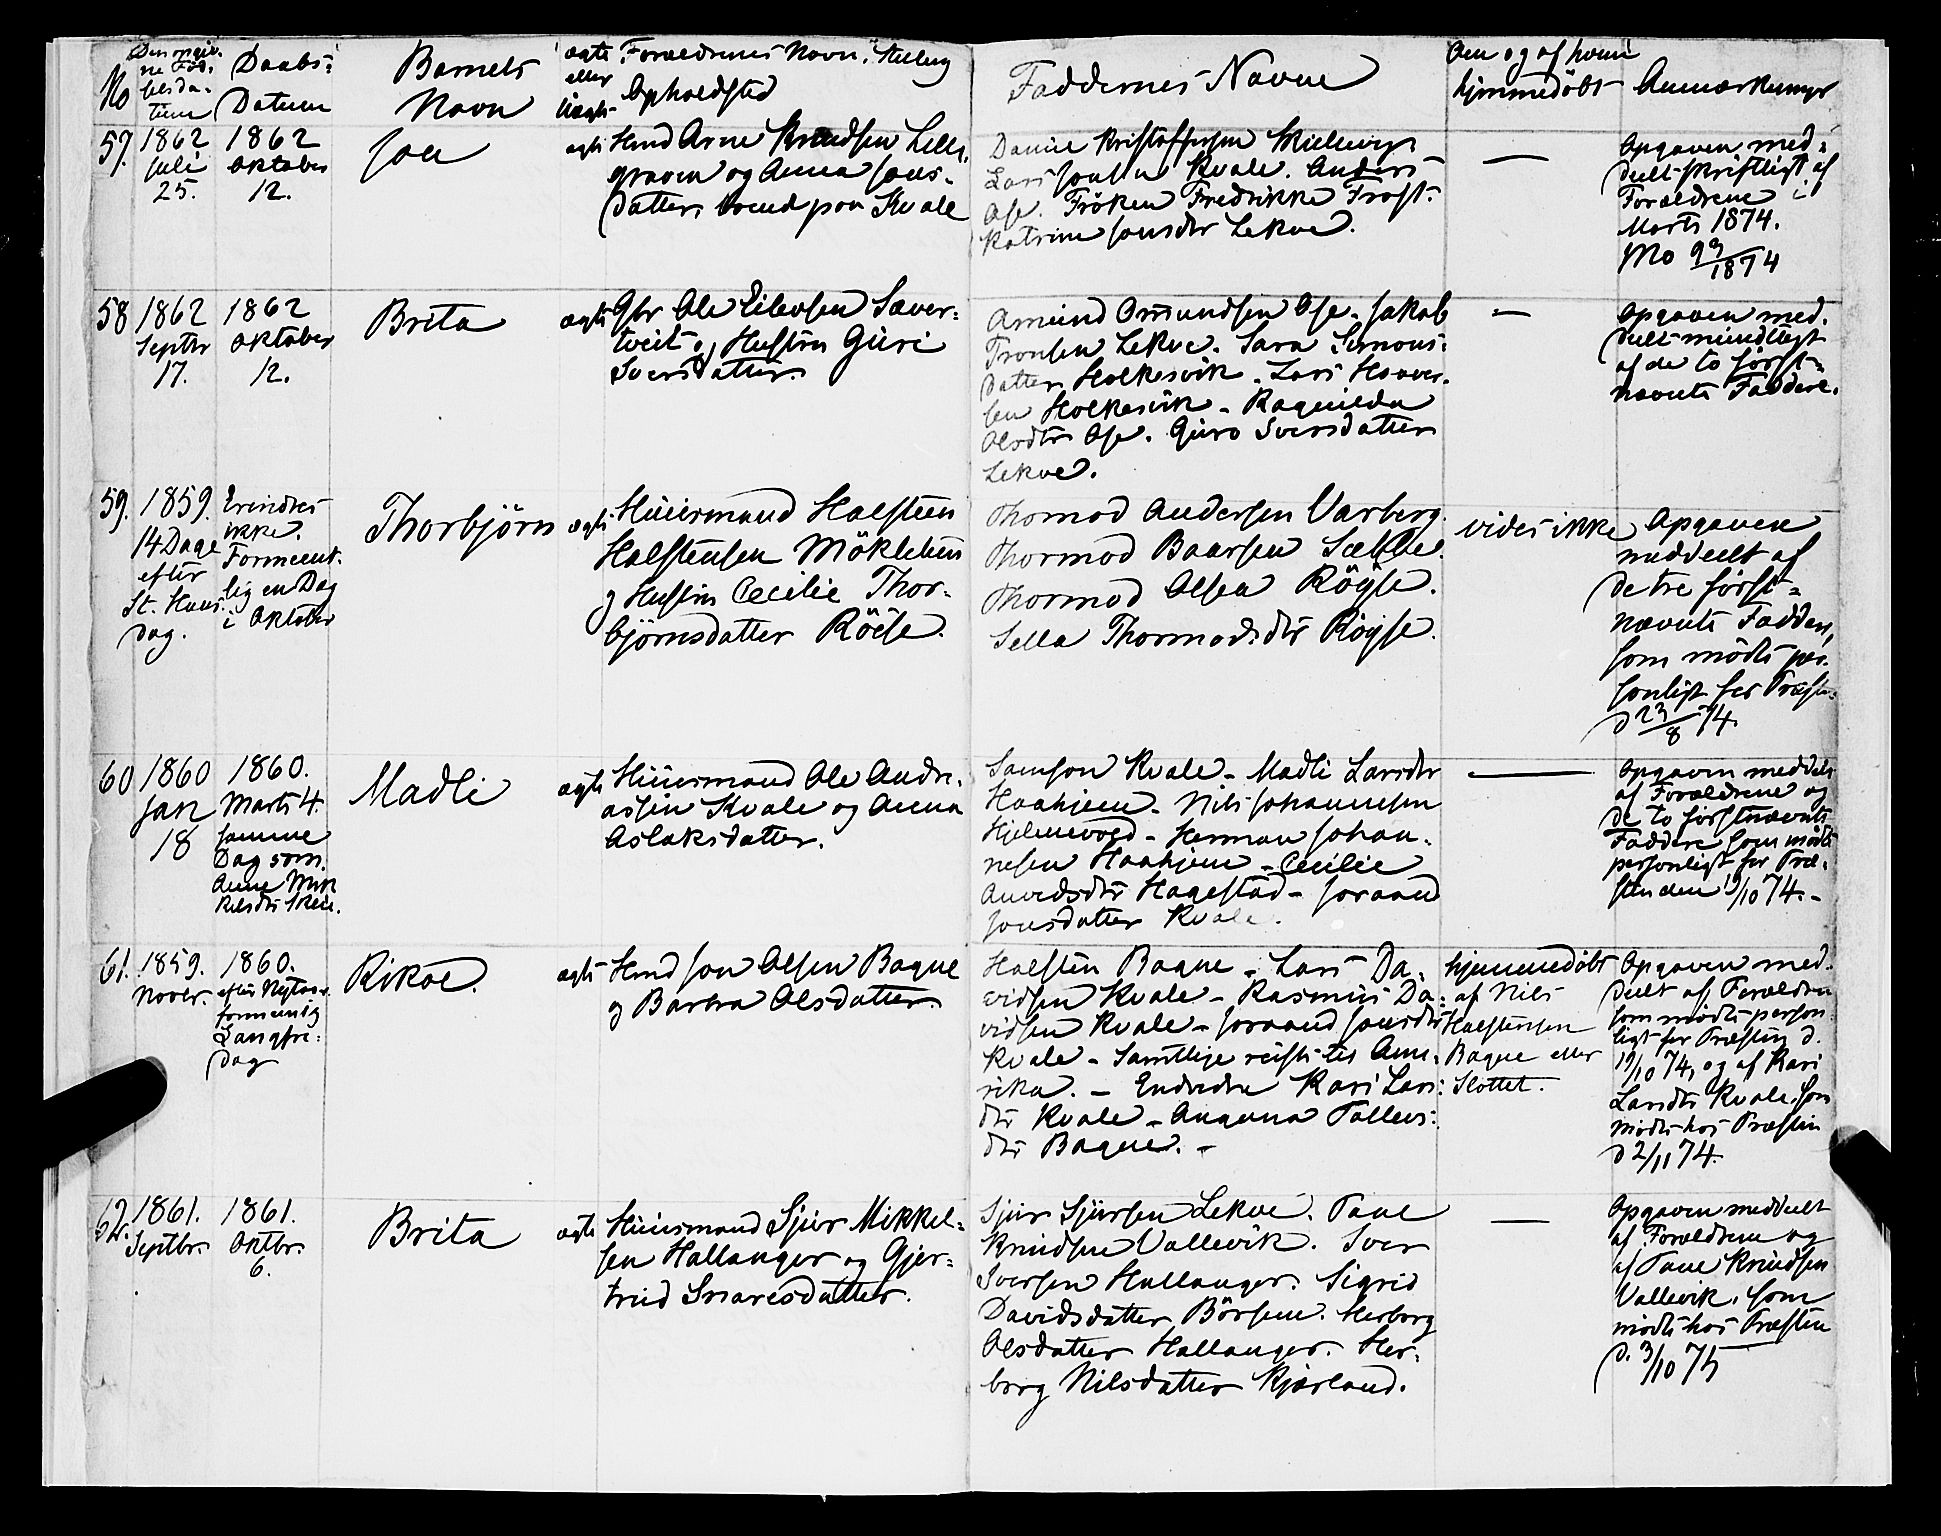 No
Den opgiv-
ne Fød-
selsda-
tum
Daabs-
Datum
Barnets
Navn
ægte
eller
Uægte
Forældrenes Navn, Stilling
Opholdsted
Faddernes Navne
Om og af hvem
hjemmedøbt
Anmærkninger
57.
1862
Juli
25.
1862
Oktober
12.
Jon
ægte
Hmd Arne Knudsen Lille-
graven og Anna Jons-
datter, boend paa Kvale
Daniel Kristoffersen
Lars Jonsen Kvale. Anders
Ose. Frøken Fredrikke Frost.
Katrine Jonsdtr Lekve.
—
Opgaven med-
deelt skriftligt af
Forældrene i
Marts 1874.
58
1862
Septbr
17.
1862
Oktober
12.
Brita
ægte
Gbr Ole Eilevsen Sæver-
tveit og Hustru Guri
Sversdatter.
Amund Omundsen Ose. Jakob
Tronsen Lekve. Sara Simons-
datter Holkesvik. Lars Haaver-
sen Holkesvik - Ragnilda
Olsdtr Ose. Guro Sversdatter
Lekve.
—
Opgaven med-
deelt mundtligt
af de to først-
nævnte Faddere.
59.
1859.
14 Dage
efter
St. Hans-
dag.
Erindres
ikke.
Formeent-
lig en Dag
i Oktober
Thorbjörn
ægte
Huusmand Halsteen
Halstensen Mökletun
og Hustru Cecilie Thor-
björnsdatter Röise.
Thormod Andersen Varberg.
Thormod Baarsen Sæbbe.
Thormod Olsen Röyse.
Sella Thormodsdtr Röyse.
vides ikke
Opgaven
meddeelt af
de tre först-
nævnte Faddere,
som mödte per-
sonligt for Præsten
d 23/8 74.
60
1860
Jan
18
1860.
Marts 4.
samme
Dag som
Anne Mik
kelsdtr Skeie.
Madli
ægte
Huusmand Ole Andre-
assen Kvale og Anna
Aslaksdatter.
Samson Kvale - Madli Larsdtr
Haahjem. Nils Johannesen
Hjelmevold - Herman Johan-
nesen Haahjem - Cecilie
Amundsdtr Hagestad - Joraand
Jonsdatter Kvale.
—
Opgaven meddelt
af Forældrene og
de to förstnævnte
Faddere som mödte
personligt for Præ-
sten den 19/10 74. -
61.
1859.
Novbr.
1860.
efter Nytaar.
formentlig
Langfre-
dag
Rikoe.
ægte
Hmd Jon Olsen Bagne
og Barbra Olsdatter
Halsten Bagne - Lars Da-
vidsen Kvale - Rasmus Da-
vidsen Kvale - Joraand Jonsdtr
Kvale - Samtlige reiste til Ame-
rika. - Endvidre Kari Lars-
dtr Kvale - Anganna Tollevs-
dtr Bagne. -
hjemmedöbt
af Nils
Halstensen
Bagne eller
Slottet.
Opgaven med-
deelt af Forældre
som mödte person-
ligt for Præsten d.
19/10 74, og af Kari
Larsdtr Kvale, som
mödte hos Præsten
d 2/11 74.
62.
1861.
Septbr.
1861.
Oktbr.
6.
Brita
ægte
Huusmand Sjur Mikkel-
sen Hallanger og Gjer-
trud Snaresdatter.
Sjur Sjursen Lekve. Tave
Knudsen Vallevik. Sver
Sversen Hallanger. Sigrid
Davidsdatter Börsem. Herborg
Olsdatter Hallanger. Her-
borg Nilsdatter Kjærland.
—
Opgaven meddeelt
af Forældrene og
af Tave Knudsen
Vallevik, som
mödte hos Præsten
d. 3/10 75